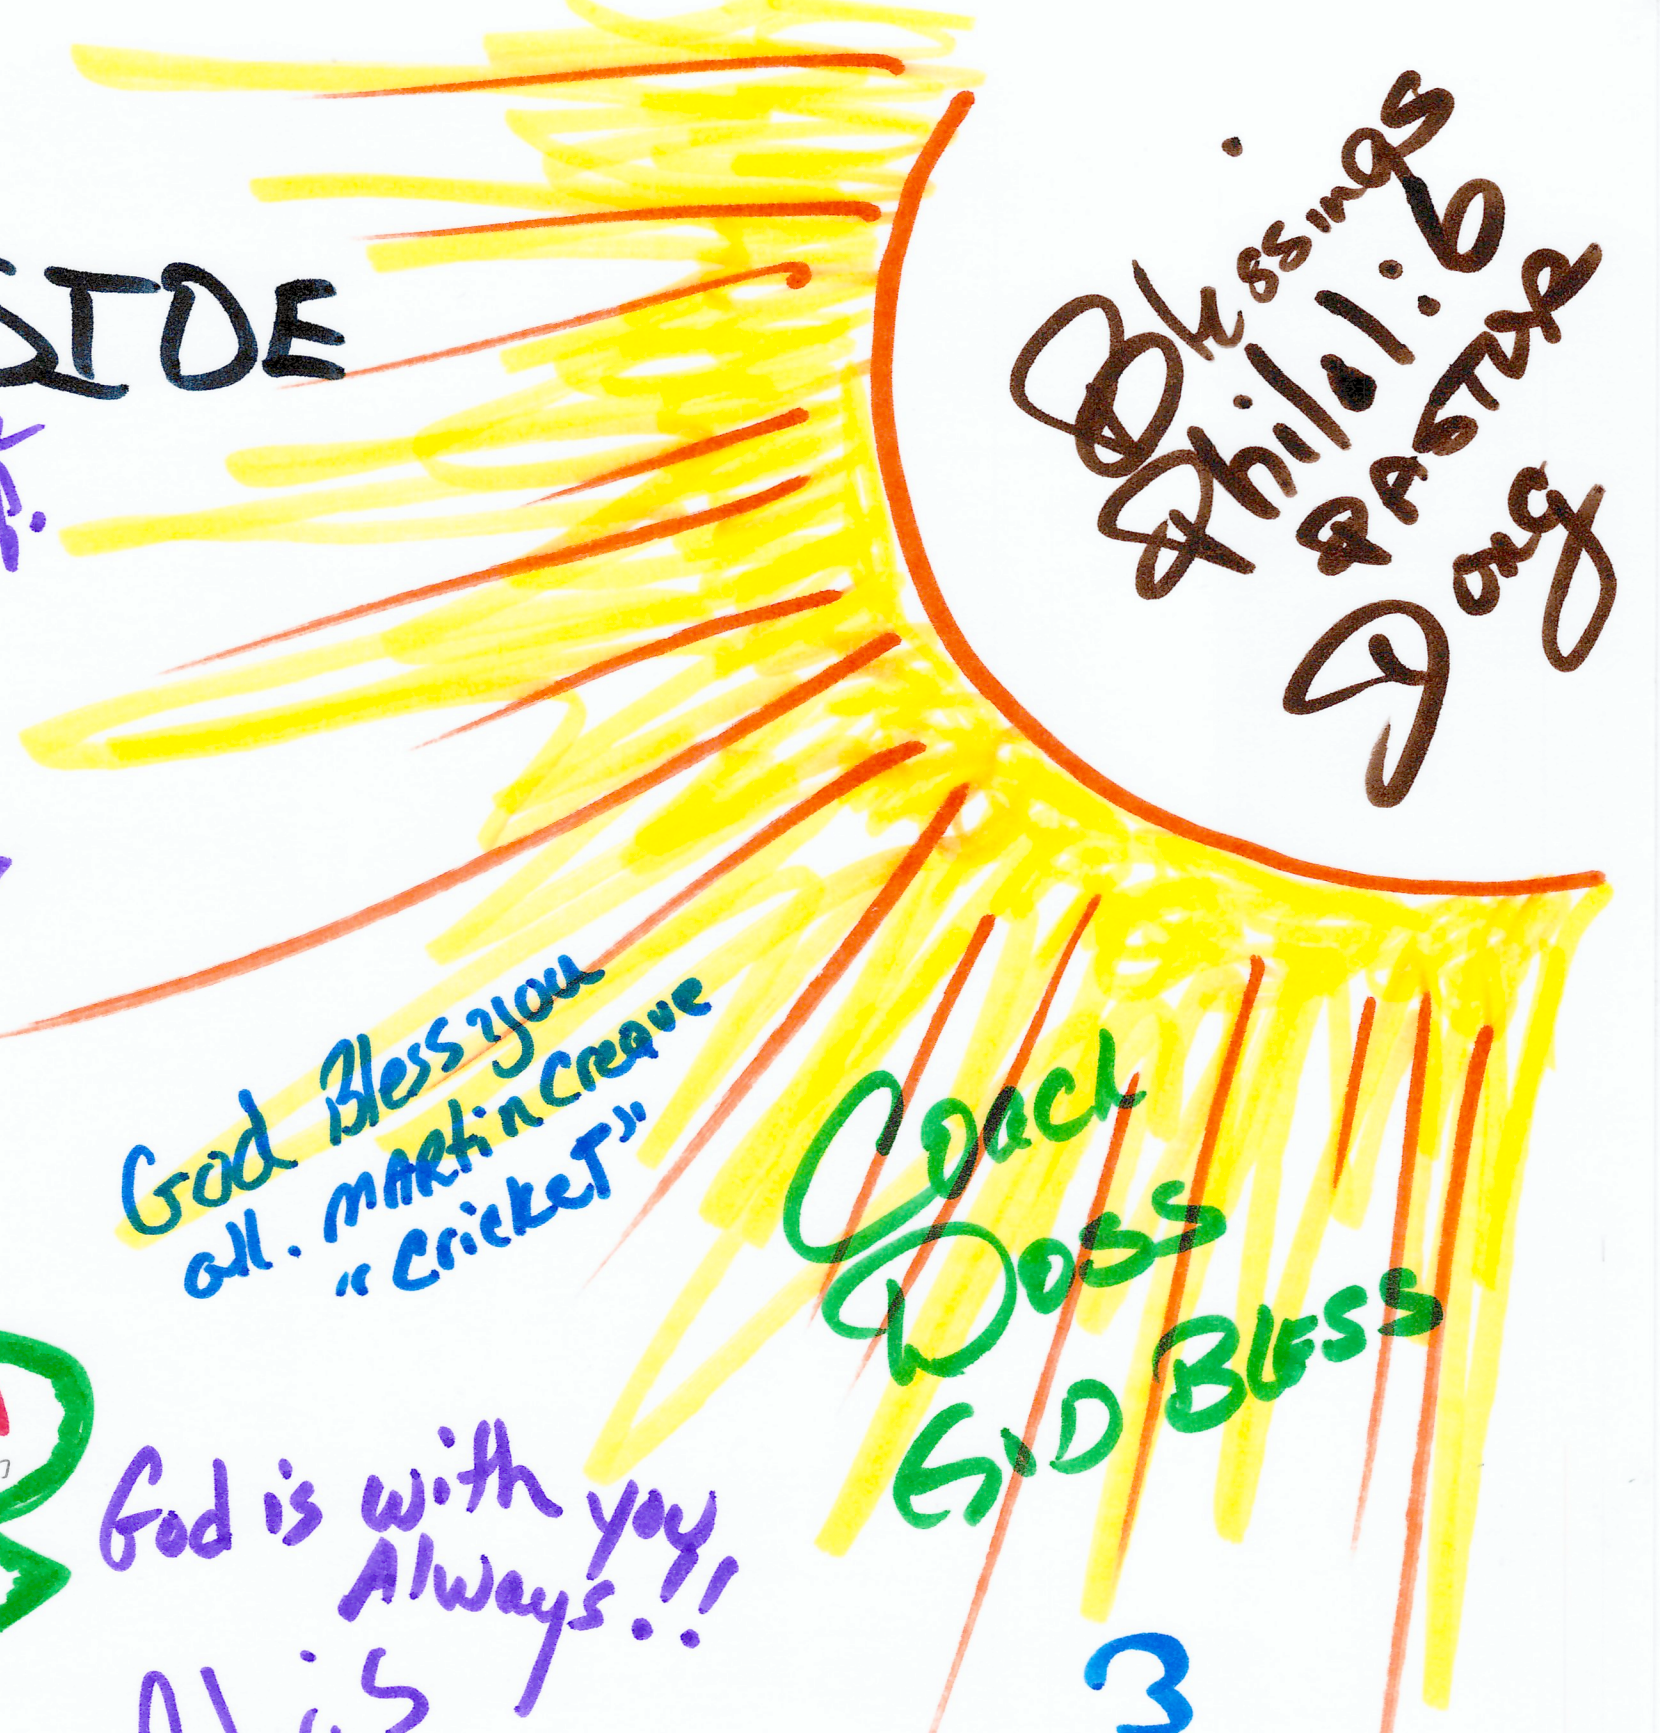 Blessings
Phil 1:6
PASTUR
Doug
SIDE
God Bless you
all. MARtin Creave
"Cricket"
Coach
Doss
GOD BLESS
God is with you
Always!!
3